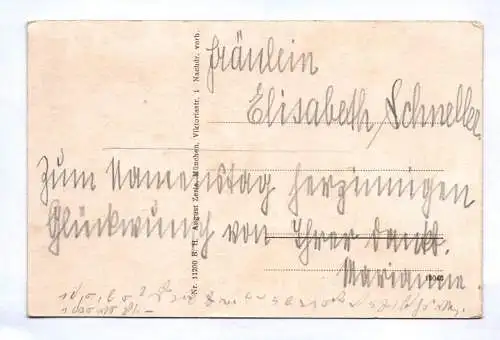 Fräulein
Elisabeth Schneller
Zum Namenstag herzinnigen
Glückwunsch von Ihrer dankb.
Marianne.
Nr. 11200 B. H. August Zerle, München, Viktoriastr. 1 Nachdr. verb.